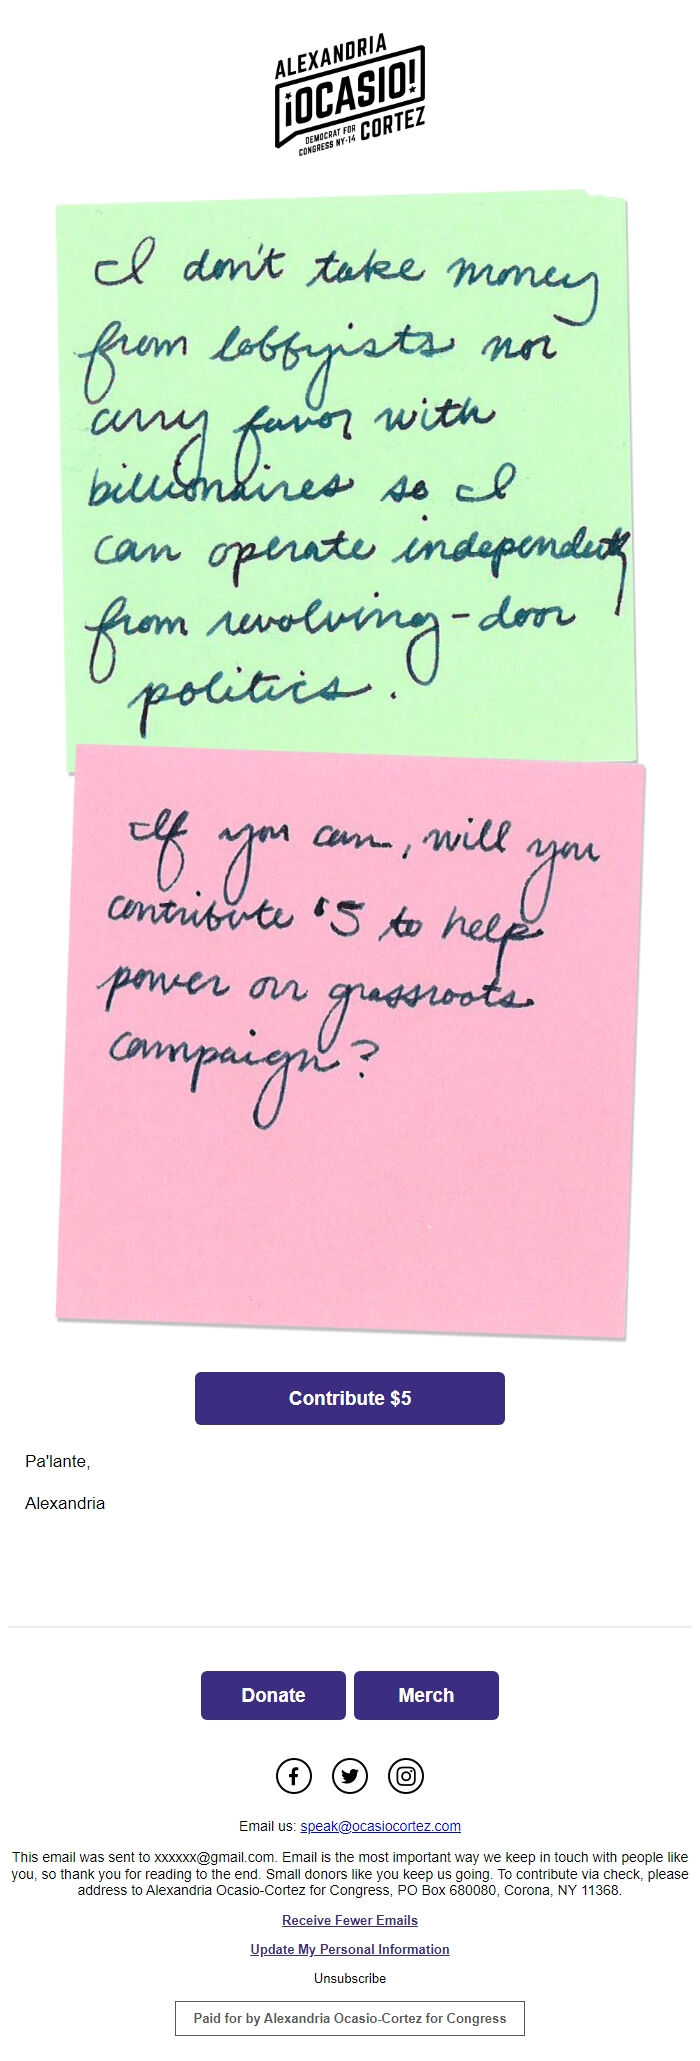 ALEXANDRIA
¡OCASIO!
DEMOCRAT FOR
CONGRESS NY-14
CORTEZ
I don't take money
from lobbyists nor
curry favor with
billionaires so I
can operate independently
from revolving-door
politics.
If you can, will you
contribute $5 to help
power our grassroots
campaign?
Contribute $5
Pa'lante,
Alexandria
Donate
Merch
Email us: speak@ocasiocortez.com
This email was sent to xxxxxx@gmail.com. Email is the most important way we keep in touch with people like
you, so thank you for reading to the end. Small donors like you keep us going. To contribute via check, please
address to Alexandria Ocasio-Cortez for Congress, PO Box 680080, Corona, NY 11368.
Receive Fewer Emails
Update My Personal Information
Unsubscribe
Paid for by Alexandria Ocasio-Cortez for Congress